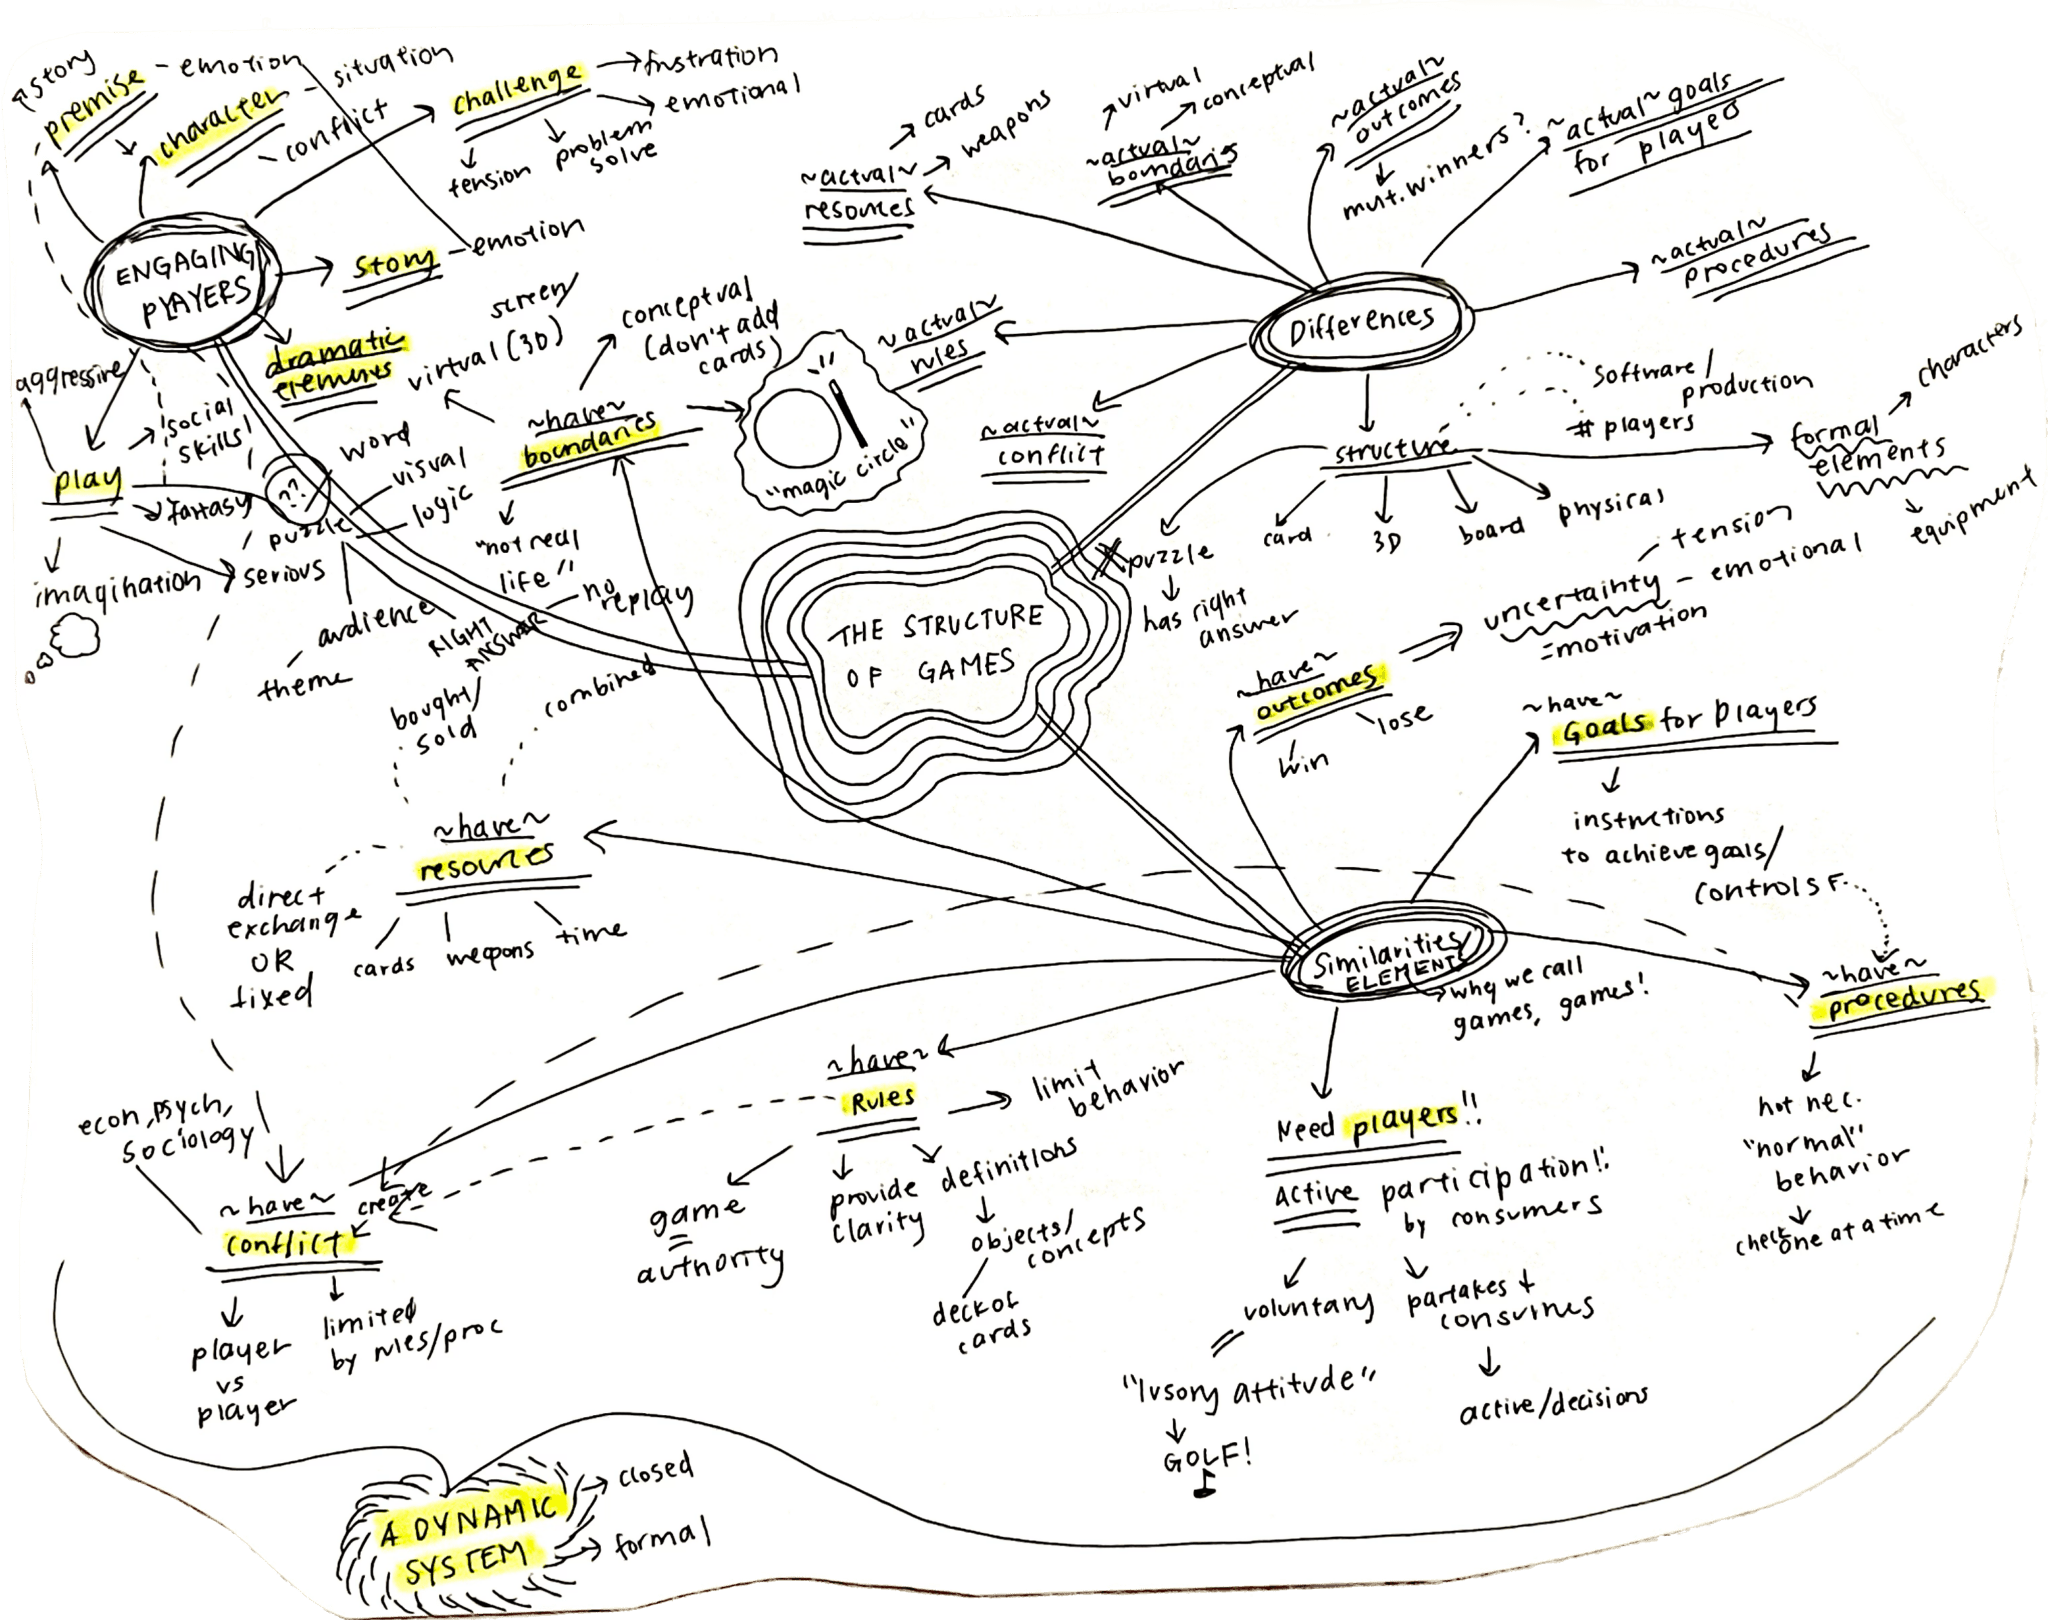 story
premise - emotion
character - situation
- conflict
challenge
frustration
emotional
problem
solve
tension
ENGAGING
PLAYERS
story - emotion
dramatic
elements
aggressive
play
social
skills
fantasy
imagination
serious
??
puzzle
word
visual
logic
audience
theme
RIGHT
ANSWER
no
replay
screen/
virtual (3D)
conceptual
(don't add
cards)
~have~
boundaries
"not real
life"
"magic circle"
THE STRUCTURE
OF GAMES
Differences
~actual~
resources
cards
weapons
~actual~
boundaries
virtual
conceptual
~actual~
outcomes
mut. winners?
~actual~ goals
for player
~actual~
procedures
~actual~
rules
~actual~
conflict
structure
software/
production
# players
formal
elements
characters
equipment
puzzle
has right
answer
card
3D
board
physical
~have~
outcomes
win
lose
uncertainty
- tension
- emotional
=motivation
~have~
Goals for players
instructions
to achieve goals/
controls
~have~
procedures
not nec.
"normal"
behavior
check
one at a time
Similarities/
ELEMENTS
why we call
games, games!
Need players!!
Active participation!!
by consumers
voluntary
"lusory attitude"
GOLF!
partakes +
consumes
active/decisions
~have~
resources
bought/
sold
combined
direct
exchange
OR
fixed
cards
weapons
time
~have~
Rules
limit
behavior
game
=
authority
provide
clarity
definitions
objects/
concepts
deck of
cards
econ, psych,
sociology
~have~
conflict
create
player
vs
player
limited
by rules/proc
A DYNAMIC
SYSTEM
closed
formal